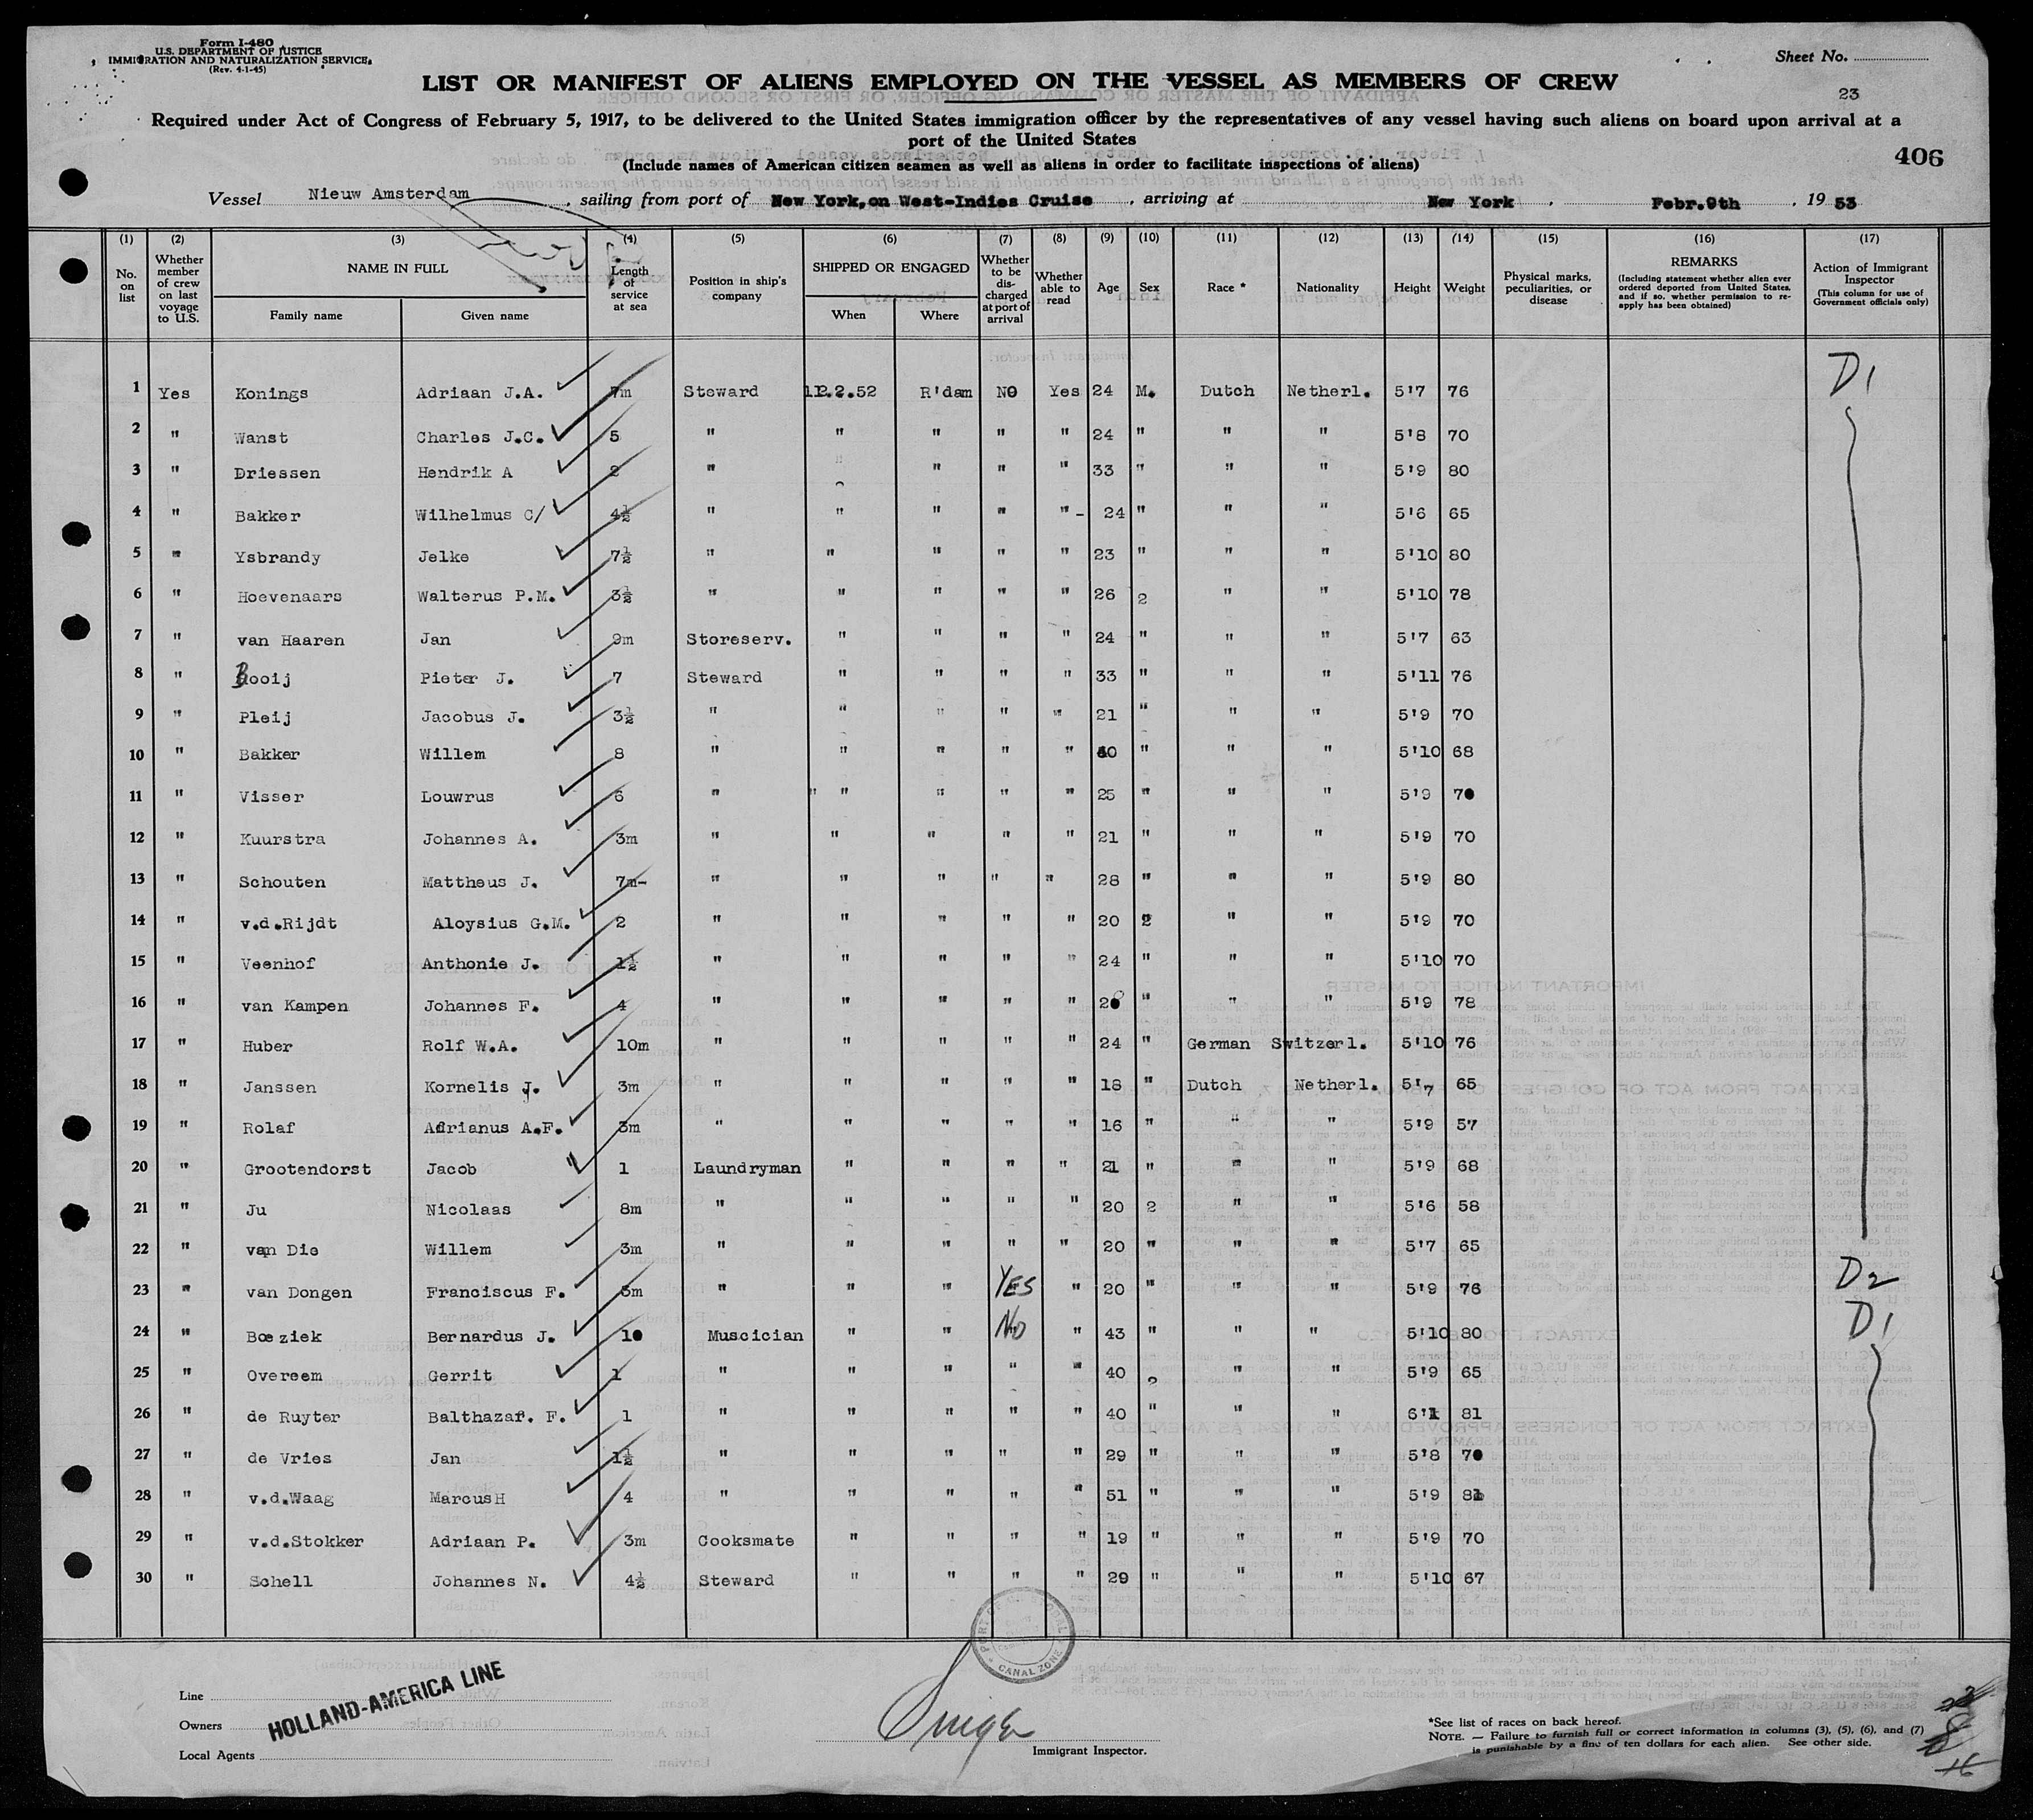 Form I-480
U.S. DEPARTMENT OF JUSTICE
IMMIGRATION AND NATURALIZATION SERVICE
(Rev. 4-1-45)
Sheet No.
LIST OR MANIFEST OF ALIENS EMPLOYED ON THE VESSEL AS MEMBERS OF CREW
23
Required under Act of Congress of February 5, 1917, to be delivered to the United States immigration officer by the representatives of any vessel having such aliens on board upon arrival at a
port of the United States
406
(Include names of American citizen seamen as well as aliens in order to facilitate inspections of aliens)
Vessel Nieuw Amsterdam, sailing from port of New York, on West-Indies Cruise, arriving at New York, Febr.9th, 1953
(1) (2) (3) (4) (5) (6) (7) (8) (9) (10) (11) (12) (13) (14) (15) (16) (17)
No. on list
Whether member of crew on last voyage to U.S.
NAME IN FULL
Family name
Given name
Length of service at sea
Position in ship's company
SHIPPED OR ENGAGED
When
Where
Whether to be discharged at port of arrival
Whether able to read
Age
Sex
Race *
Nationality
Height
Weight
Physical marks, peculiarities, or disease
REMARKS
(Including statement whether alien ever ordered deported from United States, and if so, whether permission to reapply has been obtained)
Action of Immigrant Inspector
(This column for use of Government officials only)
1 Yes Konings Adriaan J.A. 7m Steward 12.2.52 R'dam NO Yes 24 M. Dutch Netherl. 5'7 76 D1
2 " Wanst Charles J.C. 5 " " " " " 24 " " " 5'8 70
3 " Driessen Hendrik A 2 " " " " " 33 " " " 5'9 80
4 " Bakker Wilhelmus C/ 4½ " " " " "- 24 " " " 5'6 65
5 " Ysbrandy Jelke 7½ " " " " " 23 " " " 5'10 80
6 " Hoevenaars Walterus P.M. 3½ " " " " " 26 2 " " 5'10 78
7 " van Haaren Jan 9m Storeserv. " " " " 24 " " " 5'7 63
8 " Booij Pieter J. 7 Steward " " " " 33 " " " 5'11 76
9 " Pleij Jacobus J. 3½ " " " " " 21 " " " 5'9 70
10 " Bakker Willem 8 " " " " " " " " 5'10 68
11 " Visser Louwrus 6 " " " " " " 25 " " " 5'9 70
12 " Kuurstra Johannes A. 3m " " " " " 21 " " 5'9 70
13 " Schouten Mattheus J. 7m- " " " " " 28 " " " 5'9 80
14 " v.d.Rijdt Aloysius G.M. 2 " " " " " 20 2 " " 5'9 70
15 " Veenhof Anthonie J. 1½ " " " " " 24 " " " 5'10 70
16 " van Kampen Johannes F. 4 " " " " " " " " 5'9 78
17 " Huber Rolf W.A. 10m " " " " " 24 " German Switzerl. 5'10 76
18 " Janssen Kornelis J. 3m " " " " " 18 " Dutch Netherl. 5'7 65
19 " Rolaf Adrianus A.F. 3m " " " " " 16 " " " 5'9 57
20 " Grootendorst Jacob 1 Laundryman " " " " 21 " " " 5'9 68
21 " Ju Nicolaas 8m " " " " " 20 2 " " 5'6 58
22 " van Die Willem 3m " " " " " 20 " " " 5'7 65
23 " van Dongen Franciscus F. 3m " " " YES " 20 " " " 5'9 76 D2
24 " Boeziek Bernardus J. 10 Muscician " " NO " 43 " " " 5'10 80 D1
25 " Overeem Gerrit 1 " " " " " 40 2 " " 5'9 65
26 " de Ruyter Balthazar. F. 1 " " " " " 40 " " " 6'1 81
27 " de Vries Jan 1½ " " " " " 29 " " " 5'8 70
28 " v.d.Waag MarcusH 4 " " " " " 51 " " " 5'9 81
29 " v.d.Stokker Adriaan P. 3m Cooksmate " " " " 19 " " " 5'9 70
30 " Schell Johannes N. 4½ Steward " " " " 29 " " " 5'10 67
PORT OF CRISTOBAL
CANAL ZONE
Line
Owners
Local Agents
HOLLAND-AMERICA LINE
Immigrant Inspector.
*See list of races on back hereof.
NOTE. — Failure to furnish full or correct information in columns (3), (5), (6), and (7)
is punishable by a fine of ten dollars for each alien. See other side.